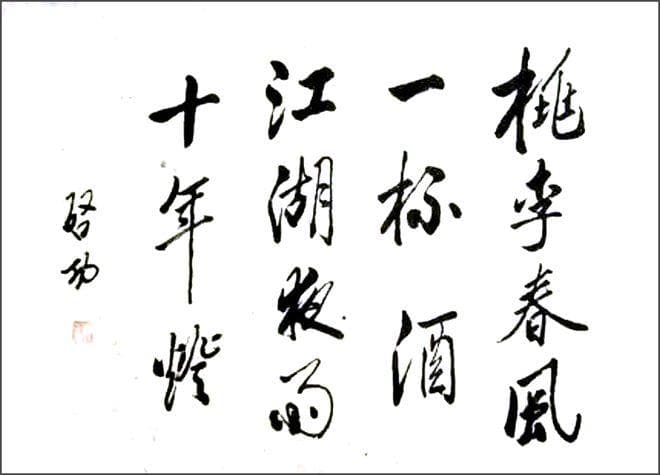 桃李春風
一杯酒
江湖夜雨
十年燈
啓功